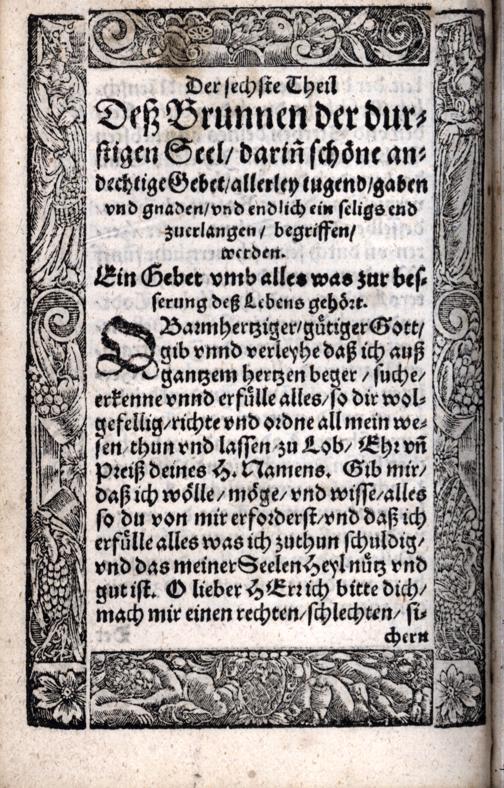 Der sechste Theil
Deß Brunnen der dur⸗
stigen Seel/ dariñ schöne an⸗
dechtige Gebet/ allerley tugend/ gaben
vnd gnaden/ vnd endlich ein seligs end
zuerlangen/ begriffen/
werden.
Ein Gebet vmb alles was zur bes⸗
serung deß Lebens gehört.
O Barmhertziger/ gütiger Gott/
gib vnnd verleyhe daß ich auß
gantzem hertzen beger/ suche/
erkenne vnnd erfülle alles/ so dir wol⸗
gefellig/ richte vnd ordne all mein we⸗
sen/ thun vnd lassen zu Lob/ Ehr vñ
Preiß deines H. Namens. Gib mir/
daß ich wölle/ möge/ vnd wisse/ alles
so du von mir erforderst/ vnd daß ich
erfülle alles was ich zuthun schuldig/
vnd das meiner Seelen Heyl nütz vnd
gut ist. O lieber HErr ich bitte dich/
mach mir einen rechten/ schlechten/ si⸗
chern